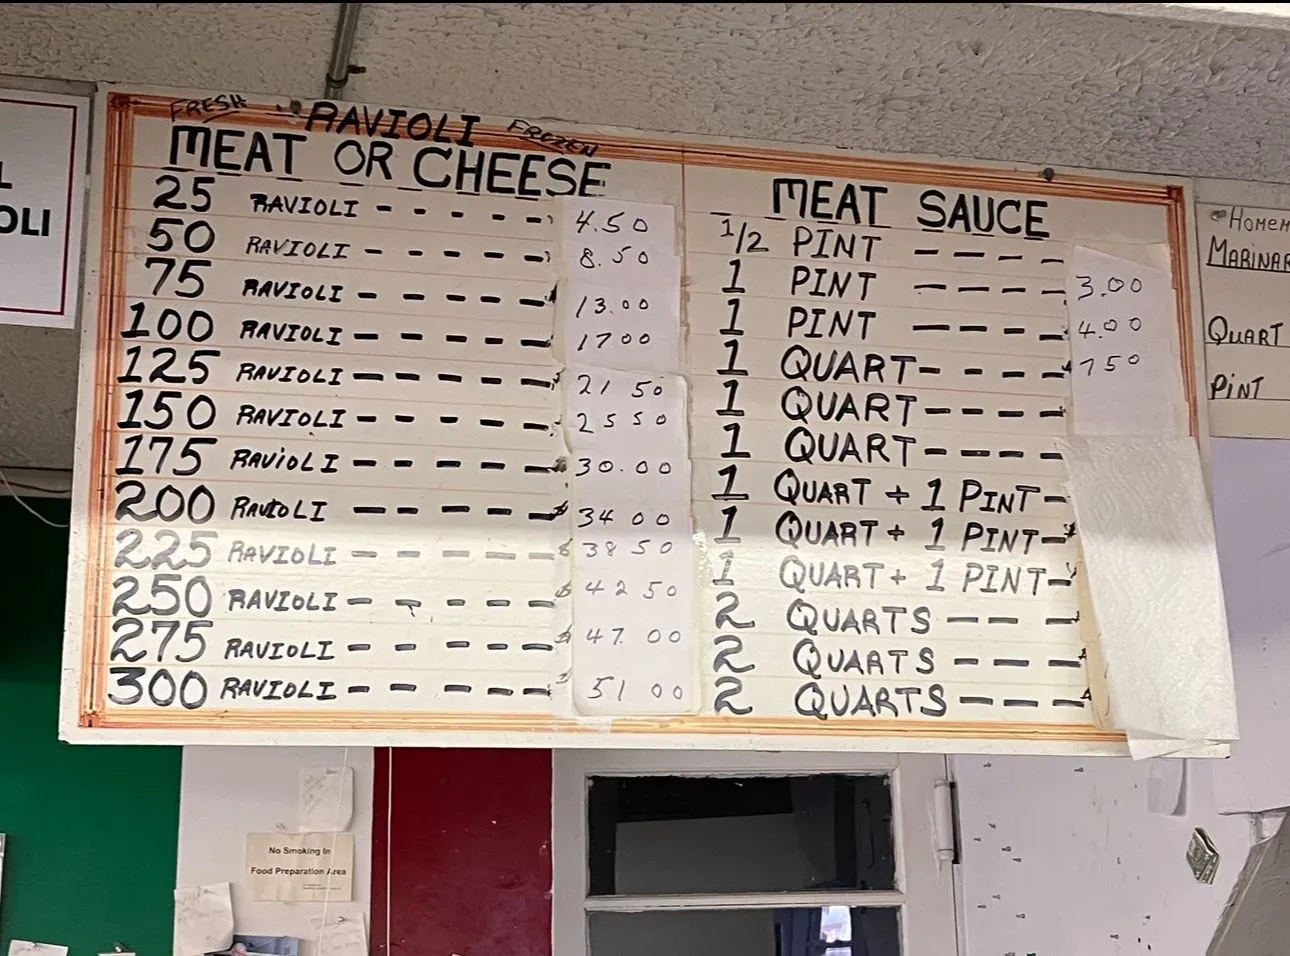 L
OLI
FRESH RAVIOLI FROZEN
MEAT OR CHEESE
25 RAVIOLI - - - - - 4.50
50 RAVIOLI - - - - - 8.50
75 RAVIOLI - - - - - 13.00
100 RAVIOLI - - - - - 17 00
125 RAVIOLI - - - - - 21 50
150 RAVIOLI - - - - - 25 50
175 RAViOLI - - - - - 30.00
200 RAVIOLI - - - - - 34 00
225 RAVIOLI - - - - - $ 38 50
250 RAVIOLI - - - - - $ 42 50
275 RAVIOLI - - - - - $ 47.00
300 RAVIOLI - - - - - 51 00
MEAT SAUCE
1/2 PINT - - - -
1 PINT - - - - 3.00
1 PINT - - - - 4.00
1 QUART - - - - 7 50
1 QUART - - - -
1 QUART - - - -
1 QUART + 1 PINT -
1 QUART + 1 PINT -
1 QUART + 1 PINT -
2 QUARTS - - -
2 QUARTS - - -
2 QUARTS - - -
HOMEM
MARINAR
QUART
PiNT
No Smoking In
Food Preparation Area